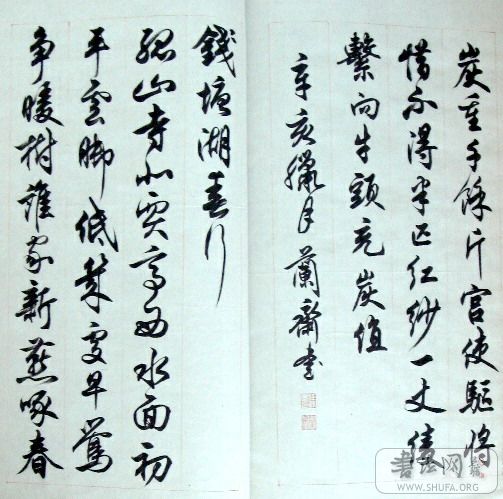 炭重千餘斤官使驅將
惜不得半匹紅紗一丈綾
繫向牛頭充炭值
辛亥臘月蘭齋書
錢塘湖春行
孤山寺北賈亭西水面初
平雲腳低幾處早鶯
爭暖樹誰家新燕啄春
書法网
WWW.SHUFA.ORG